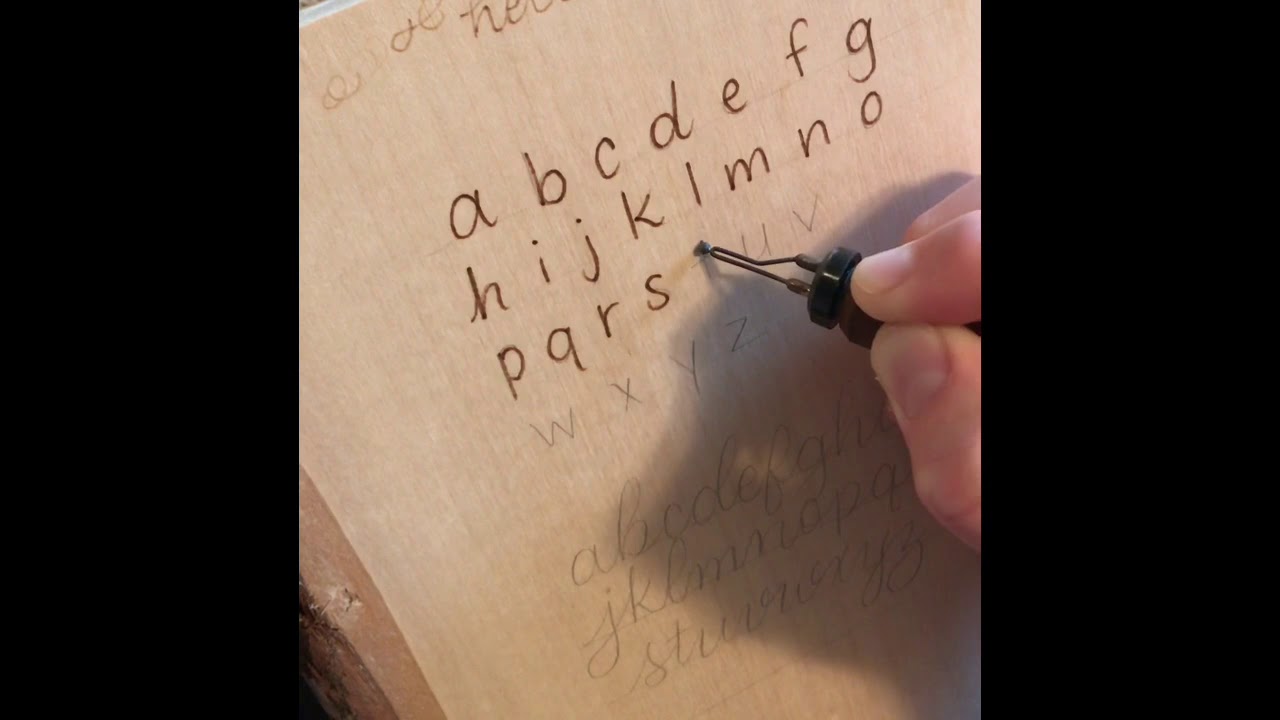 a b c d e f g
h i j k l m n o
p q r s u v
w x y z
abcdefgh
jklmnopq
stuvwxyz